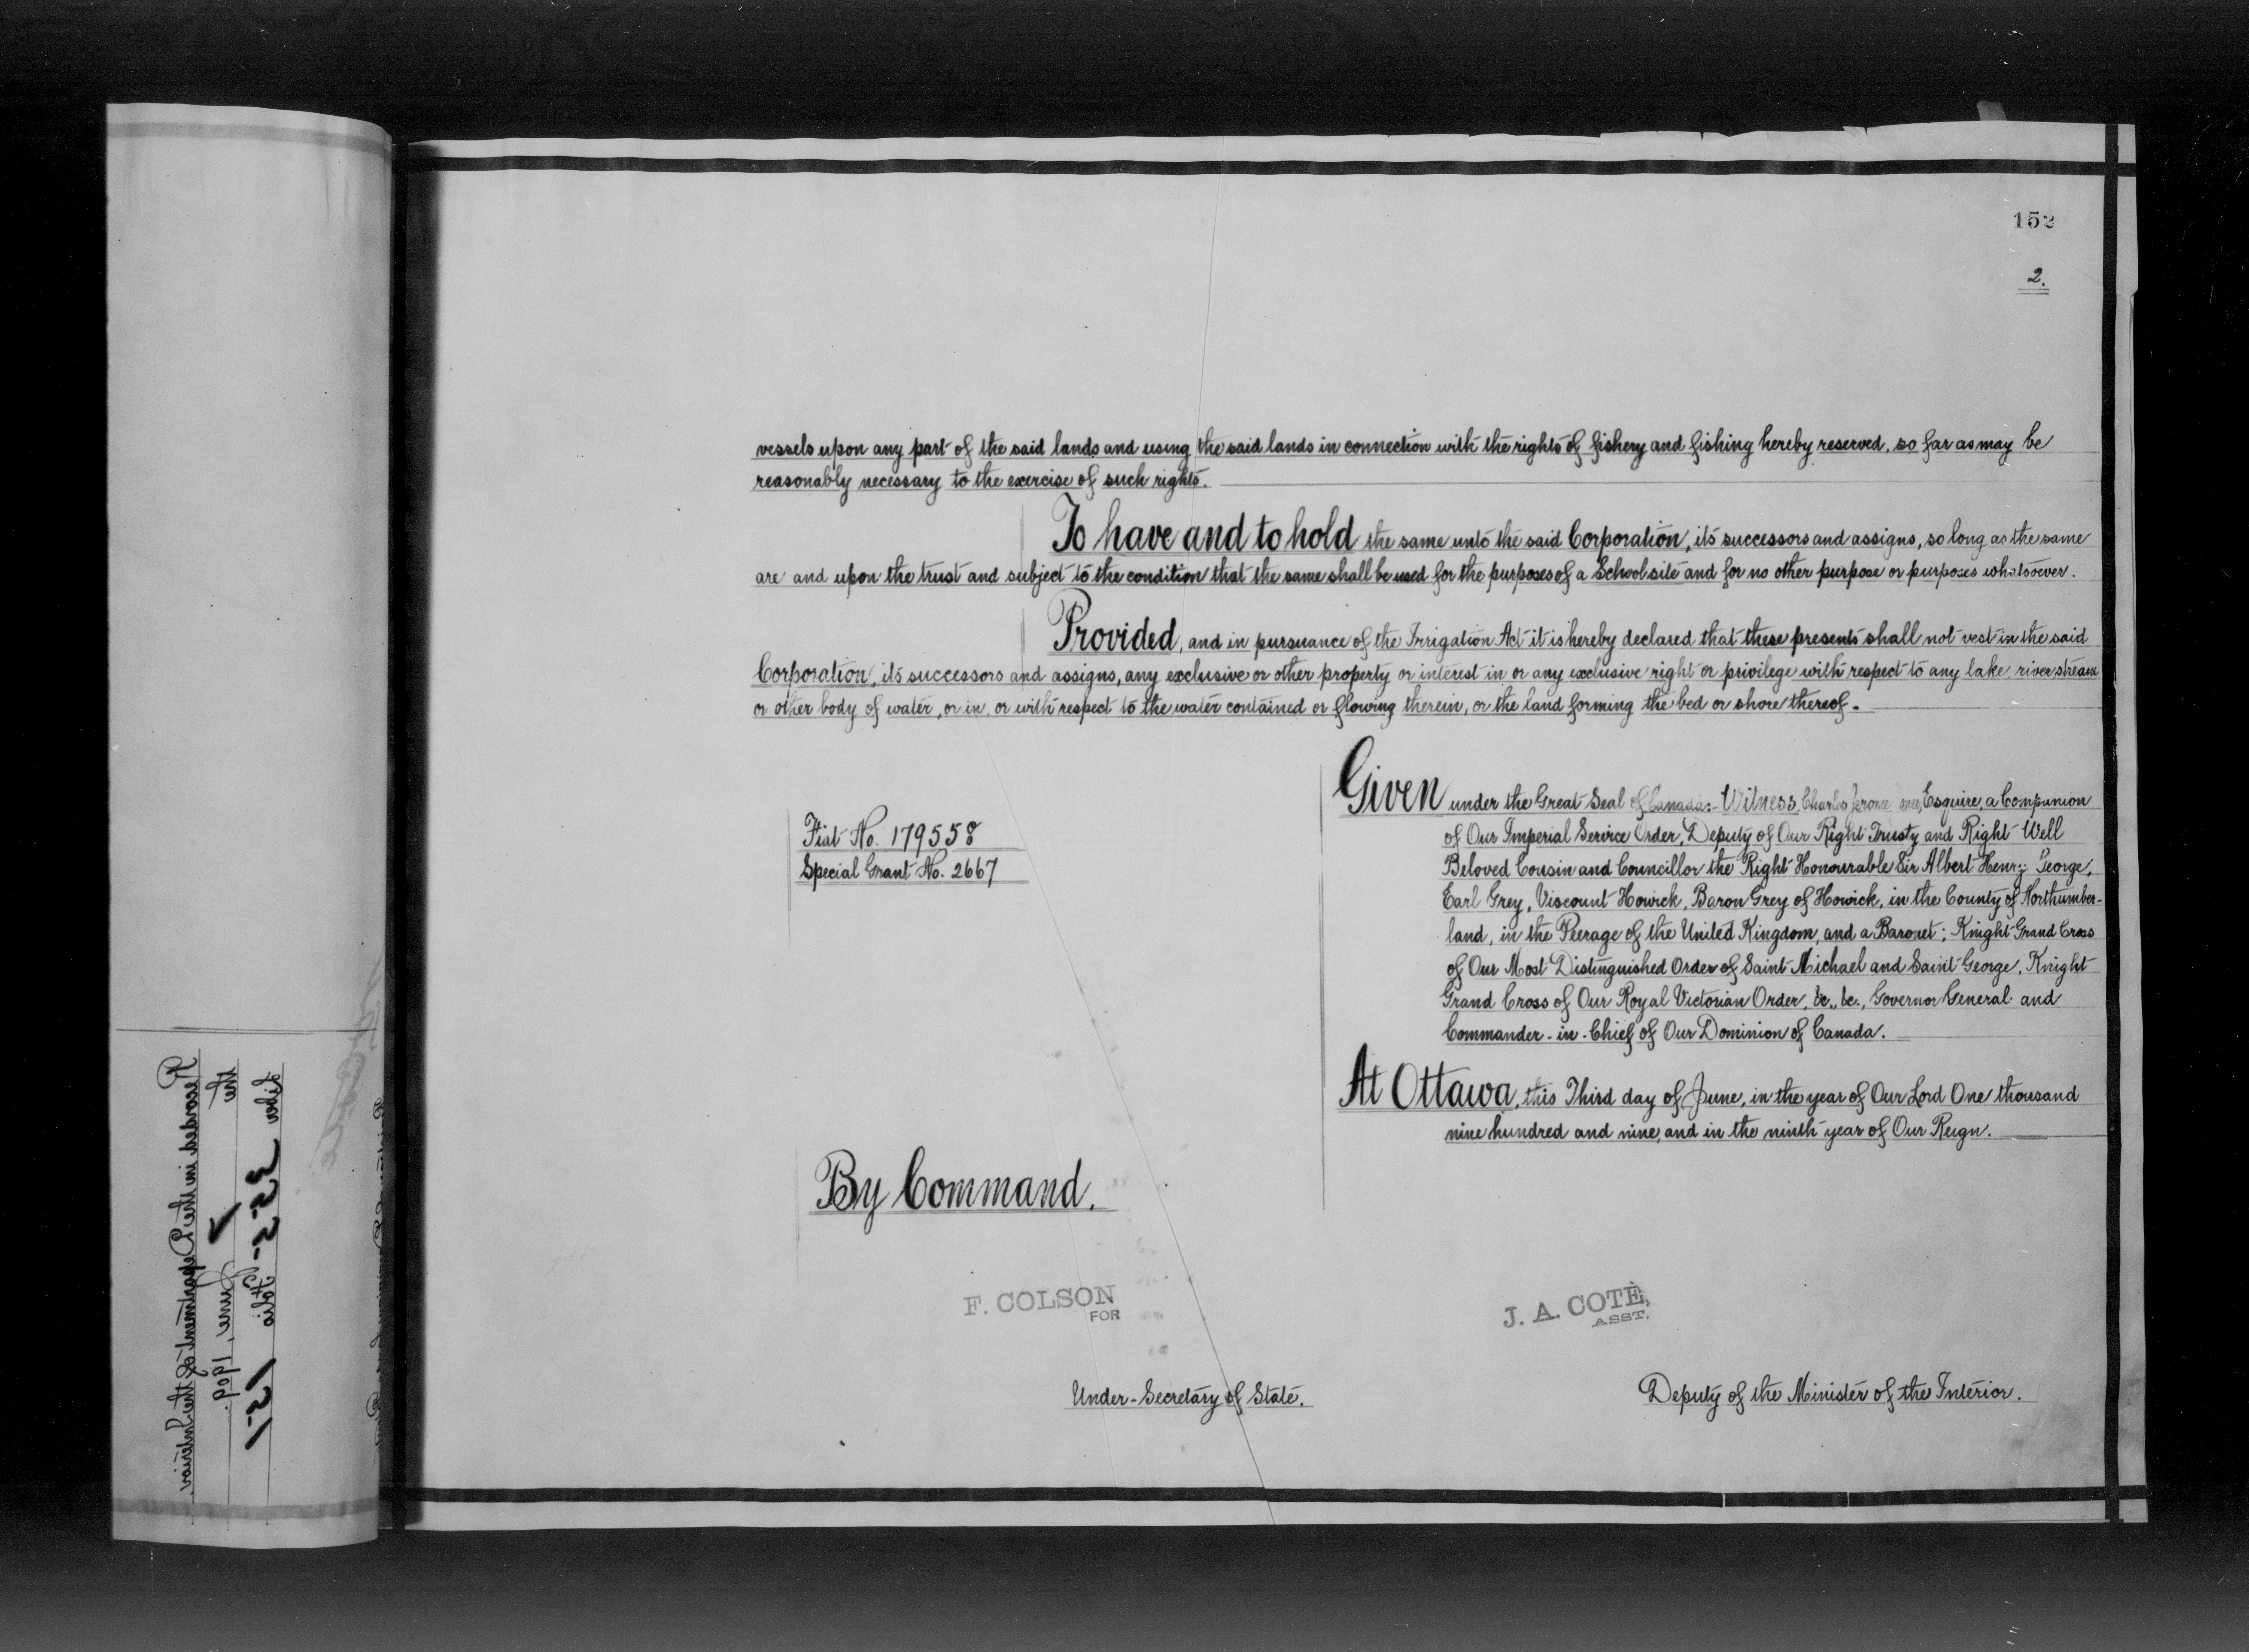 152
2.
vessels upon any part of the said lands and using the said lands in connection with the rights of fishery and fishing hereby reserved, so far as may be
reasonably necessary to the exercise of such rights.
To have and to hold the same unto the said Corporation, its successors and assigns, so long as the same
are and upon the trust and subject to the condition that the same shall be used for the purposes of a School site and for no other purpose or purposes whatsoever.
Provided, and in pursuance of the Irrigation Act it is hereby declared that these presents shall not vest in the said
Corporation, its successors and assigns, any exclusive or other property or interest in or any exclusive right or privilege with respect to any lake, river stream
or other body of water, or in, or with respect to the water contained or flowing therein, or the land forming the bed or shore thereof.
Fiat No. 179558
Special Grant No. 2667
Given under the Great Seal of Canada:- Witness, Charles Jerome Esquire, a Companion
of Our Imperial Service Order, Deputy of Our Right Trusty and Right Well
Beloved Cousin and Councillor the Right Honourable Sir Albert Henry George,
Earl Grey, Viscount Howick, Baron Grey of Howick, in the County of Northumber-
land, in the Peerage of the United Kingdom, and a Baronet; Knight Grand Cross
of Our Most Distinguished Order of Saint Michael and Saint George, Knight
Grand Cross of Our Royal Victorian Order, &c., &c., Governor General and
Commander-in-Chief of Our Dominion of Canada.
At Ottawa, this Third day of June, in the year of Our Lord One thousand
nine hundred and nine, and in the ninth year of Our Reign.
By Command.
F. COLSON
FOR
Under-Secretary of State.
J. A. COTÈ,
ASST.
Deputy of the Minister of the Interior.
Recorded in the Department of the Interior
the June, 1909.
Liber Folio 151